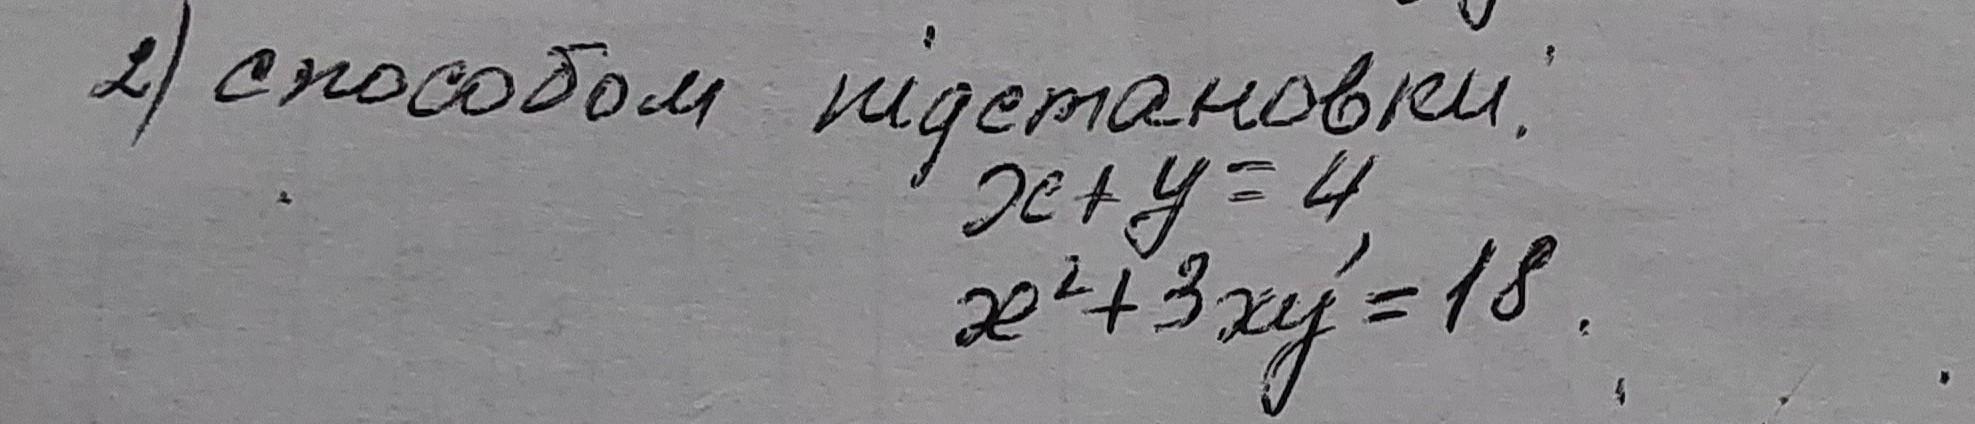 2) способом підстановки:
x + y = 4,
x² + 3xy = 18.